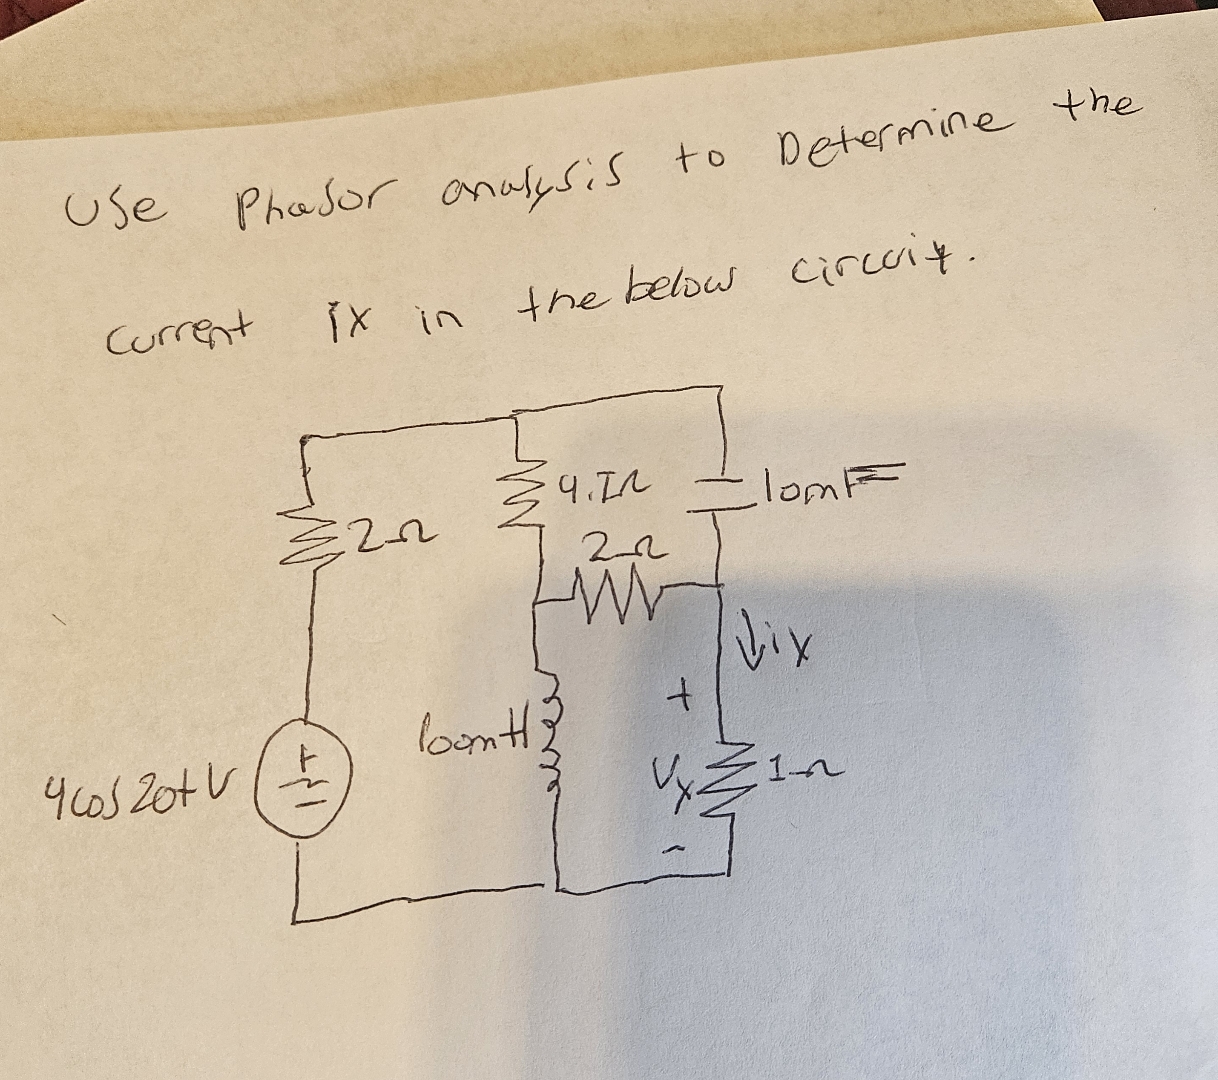 Use Phasor analysis to Determine the
current ix in the below circuit.
4.7Ω
10mF
2Ω
2Ω
↓ix
+
100mH
+
4cos20t V
Vx
1Ω
-
-